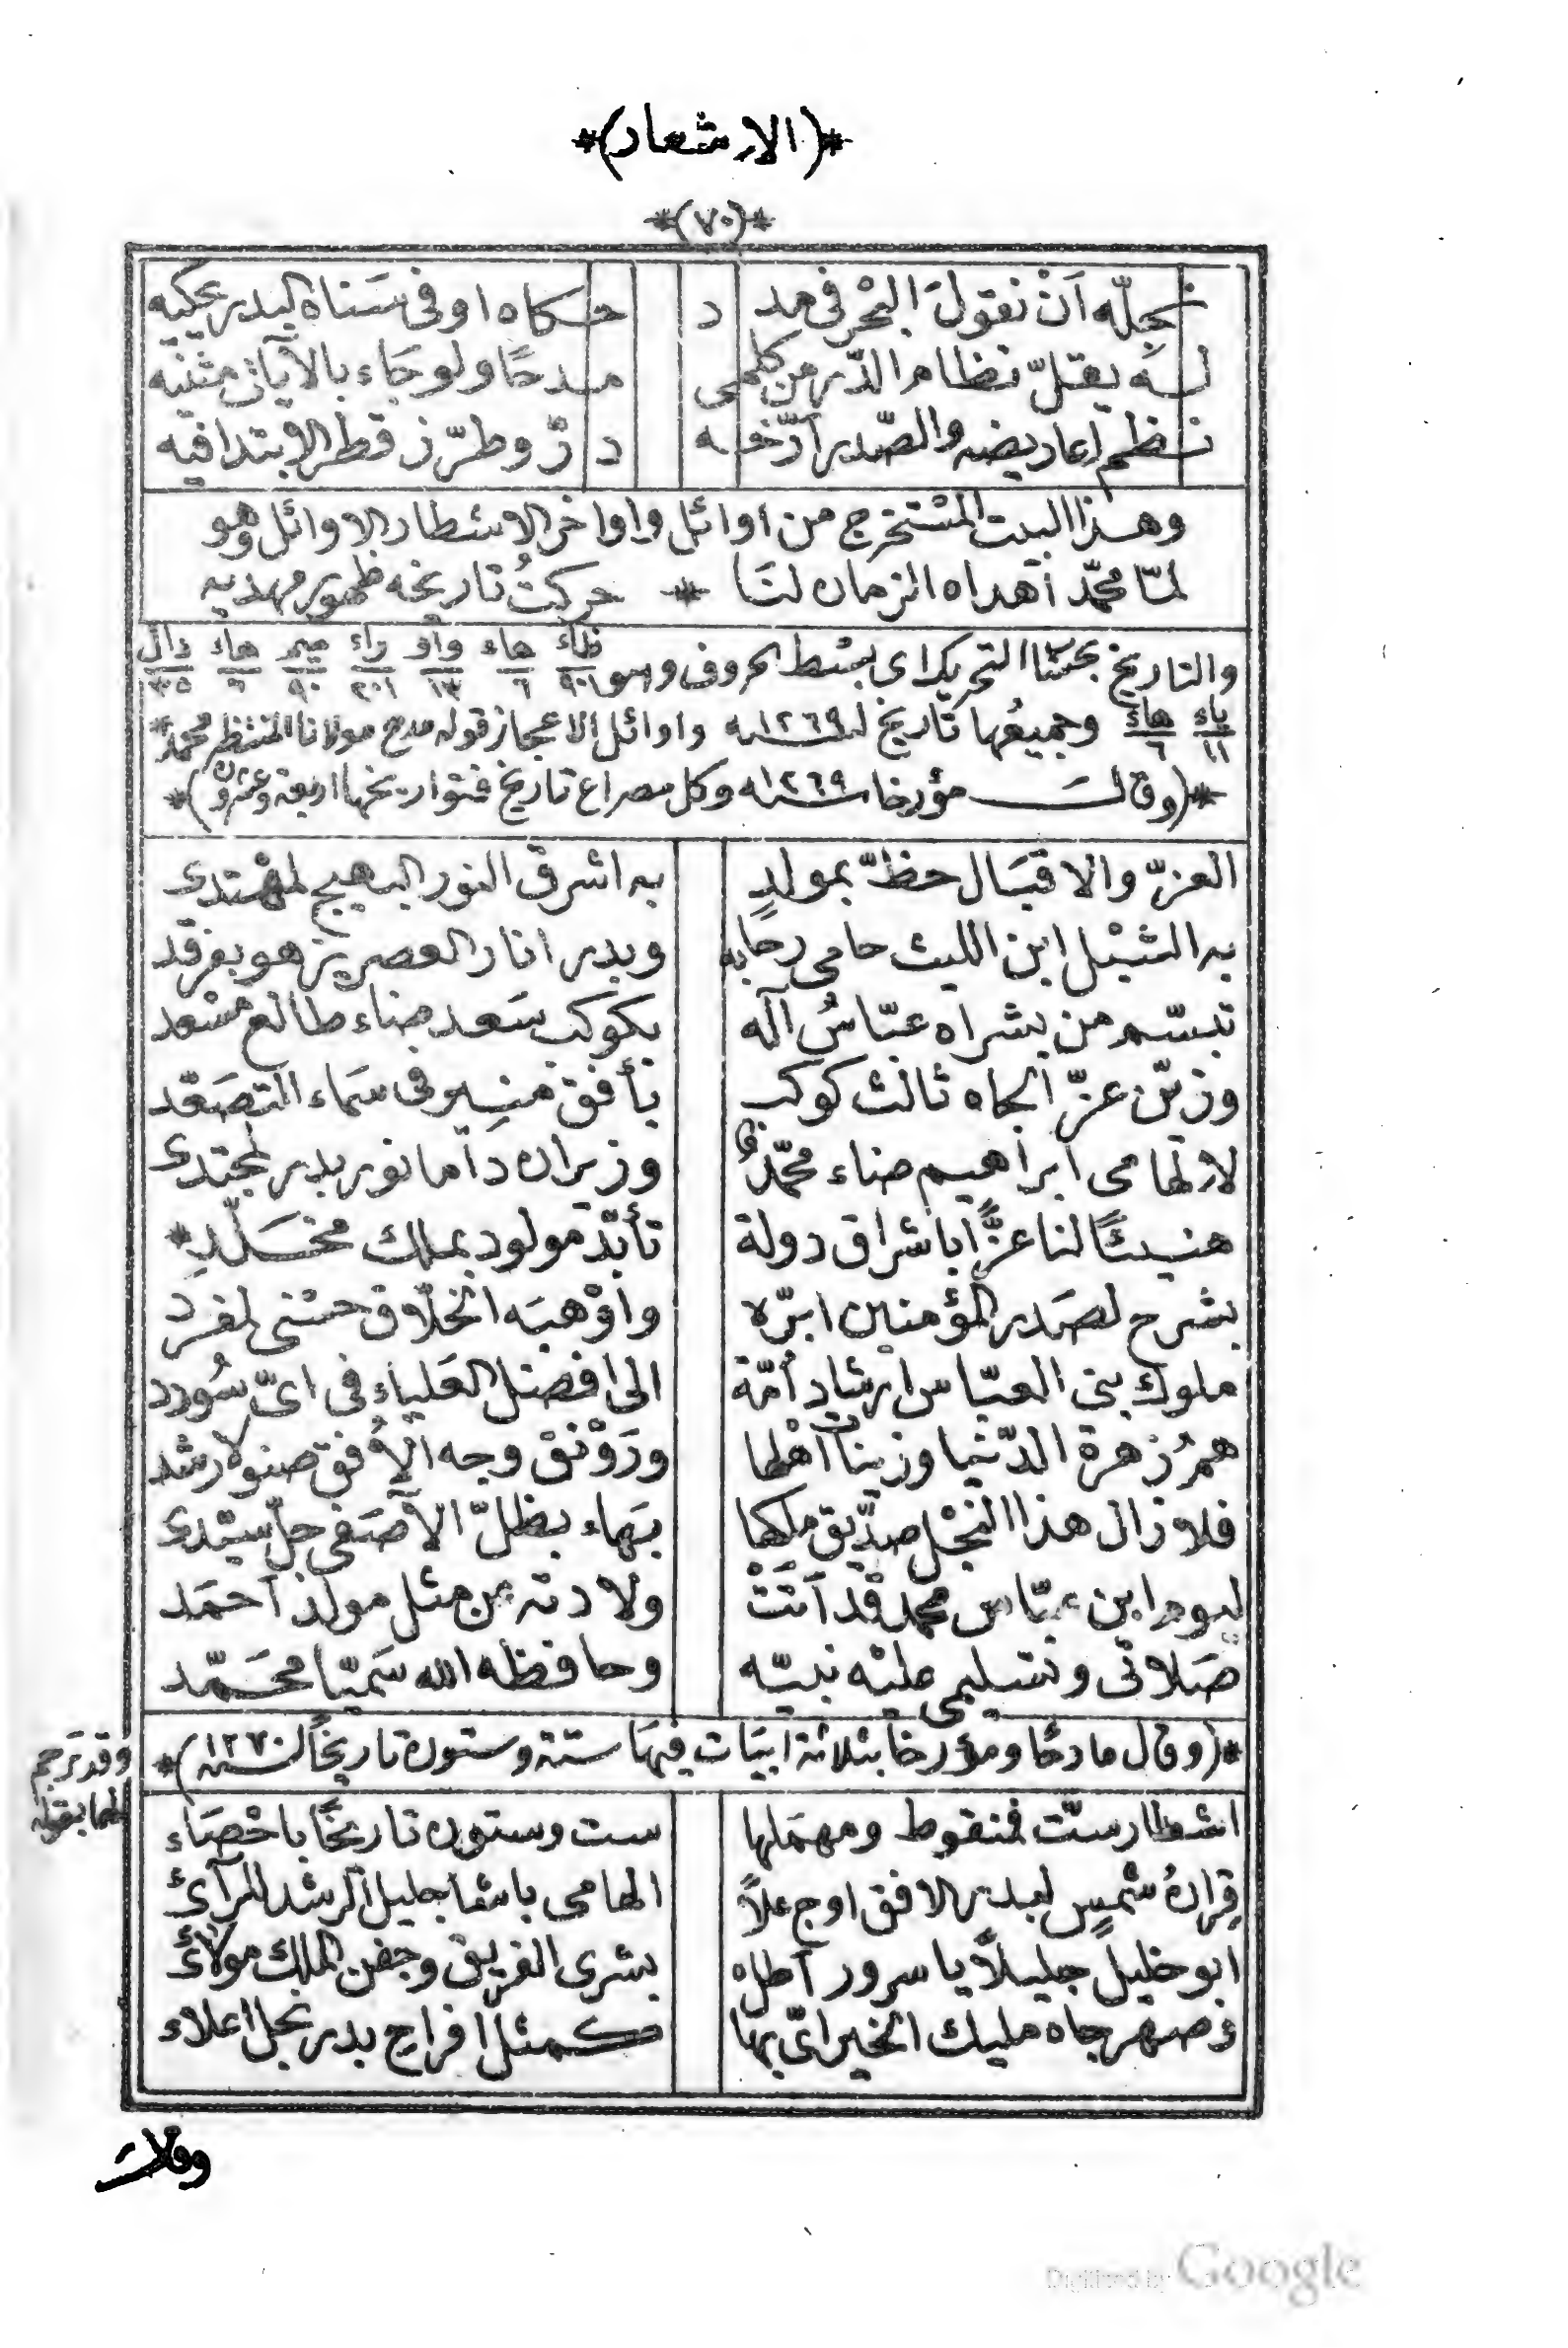 *(الاشعار)*
*(٧٠)*
نجلّه اَنْ نقولَ البحْر فى مد د حكاه اوفى سَناه البدر يحكيه
لـه يقلّ نظام الدّر من كلمى مدحًا ولو جَاء بالآياتى مثنيه
نظم اعاريضه والصّدر أرّخه درّ وطرّز قطر الابتدا فيه
وهذا البيت المسْتخرج من اوائل واواخر الاشطار الاوائل وهو
لمّا محمّد أهداه الزمان لنَا * حركتُ تاريخه ظهور مهديه
والتاريخ بحسَب التحريك اى ببسْط الحروف وهو ظاء ٩٠١ هاء ٦ واو ١٣ راء ٢٠١ ميم ٩٠ هاء ٦ دال ٣٥
ياء ١١ هاء ٦ وجميعُها تاريخ لسنه ١٢٦٩ واوائل الاعجاز قوله مدح مولانا المنتظر محمد *
*(وقالـــ مؤرخا سنه ١٢٦٩ وكل مصراع تاريخ فتواريخها اربعة وعشرون)*
العزّ والاقبَال حظّ بمولدٍ به اشرق النور البهيج لمهْتدى
به الشبْل ابن الليث حامى رحابه وبدر انار العصر يزهو بفرقد
تبسّم من بشراه عبّاسُ آله بكوكب سَعد ضاء طالع مسْعد
وزيّن عزّ الجاه ثالث كوكب بأفق منير فى سَماء التصَعّد
لالهامى ابراهيم ضاء محمّدٌ وزيران داما نور بدر لمجتدى
هنيئًا لنا عزًّا باشراق دولة تأبّد مولود بملك مخلّدِ *
بشرح لصَدر المؤمنين ابرّه واوْهبَه الخلّاق حسْنى لمفرد
ملوك بنى العبّاس ارشاد اُمّة الى افضل العَلياء فى اىّ سُودد
همُ زهرة الدّنيا وزينات اَهْلها ورَوْنق وجه الأُفق صنو لارشد
فلا زال هذا النجْل صدّيق ملكها بهَاء بظلّ الآصَفى جلّ سيّدى
ليوم ابن عبّاس محمد قدْ اَتَتْ ولادته من مثل مولد اَحمَد
صَلاتى وتسْليمى عليْه نبيّه وحافظه الله سَميّا محَمّد
*(وقال مادحًا ومؤرخًا بثلاثة ابيَات فيهَا ستة وستون تاريخًا لسنه ١٢٧٠)*
وقد ترجم
لها بقوله
اشطار ستّ فمنقوط ومهمَلها ست وستون تاريخًا باحْصَاء
قِرانُ شمسٍ لبدر الافق اوج علاً الهامى باشا جليل الرشد للرآئ
ابو خليل جليلاً يا سرور اَطله بشرى الفريق وجفن الملك مولائ
فصهر جاه مليك الخير اىّ بها كمثل افراح بدر نجل اعلاء
وقالت
Digitized by Google